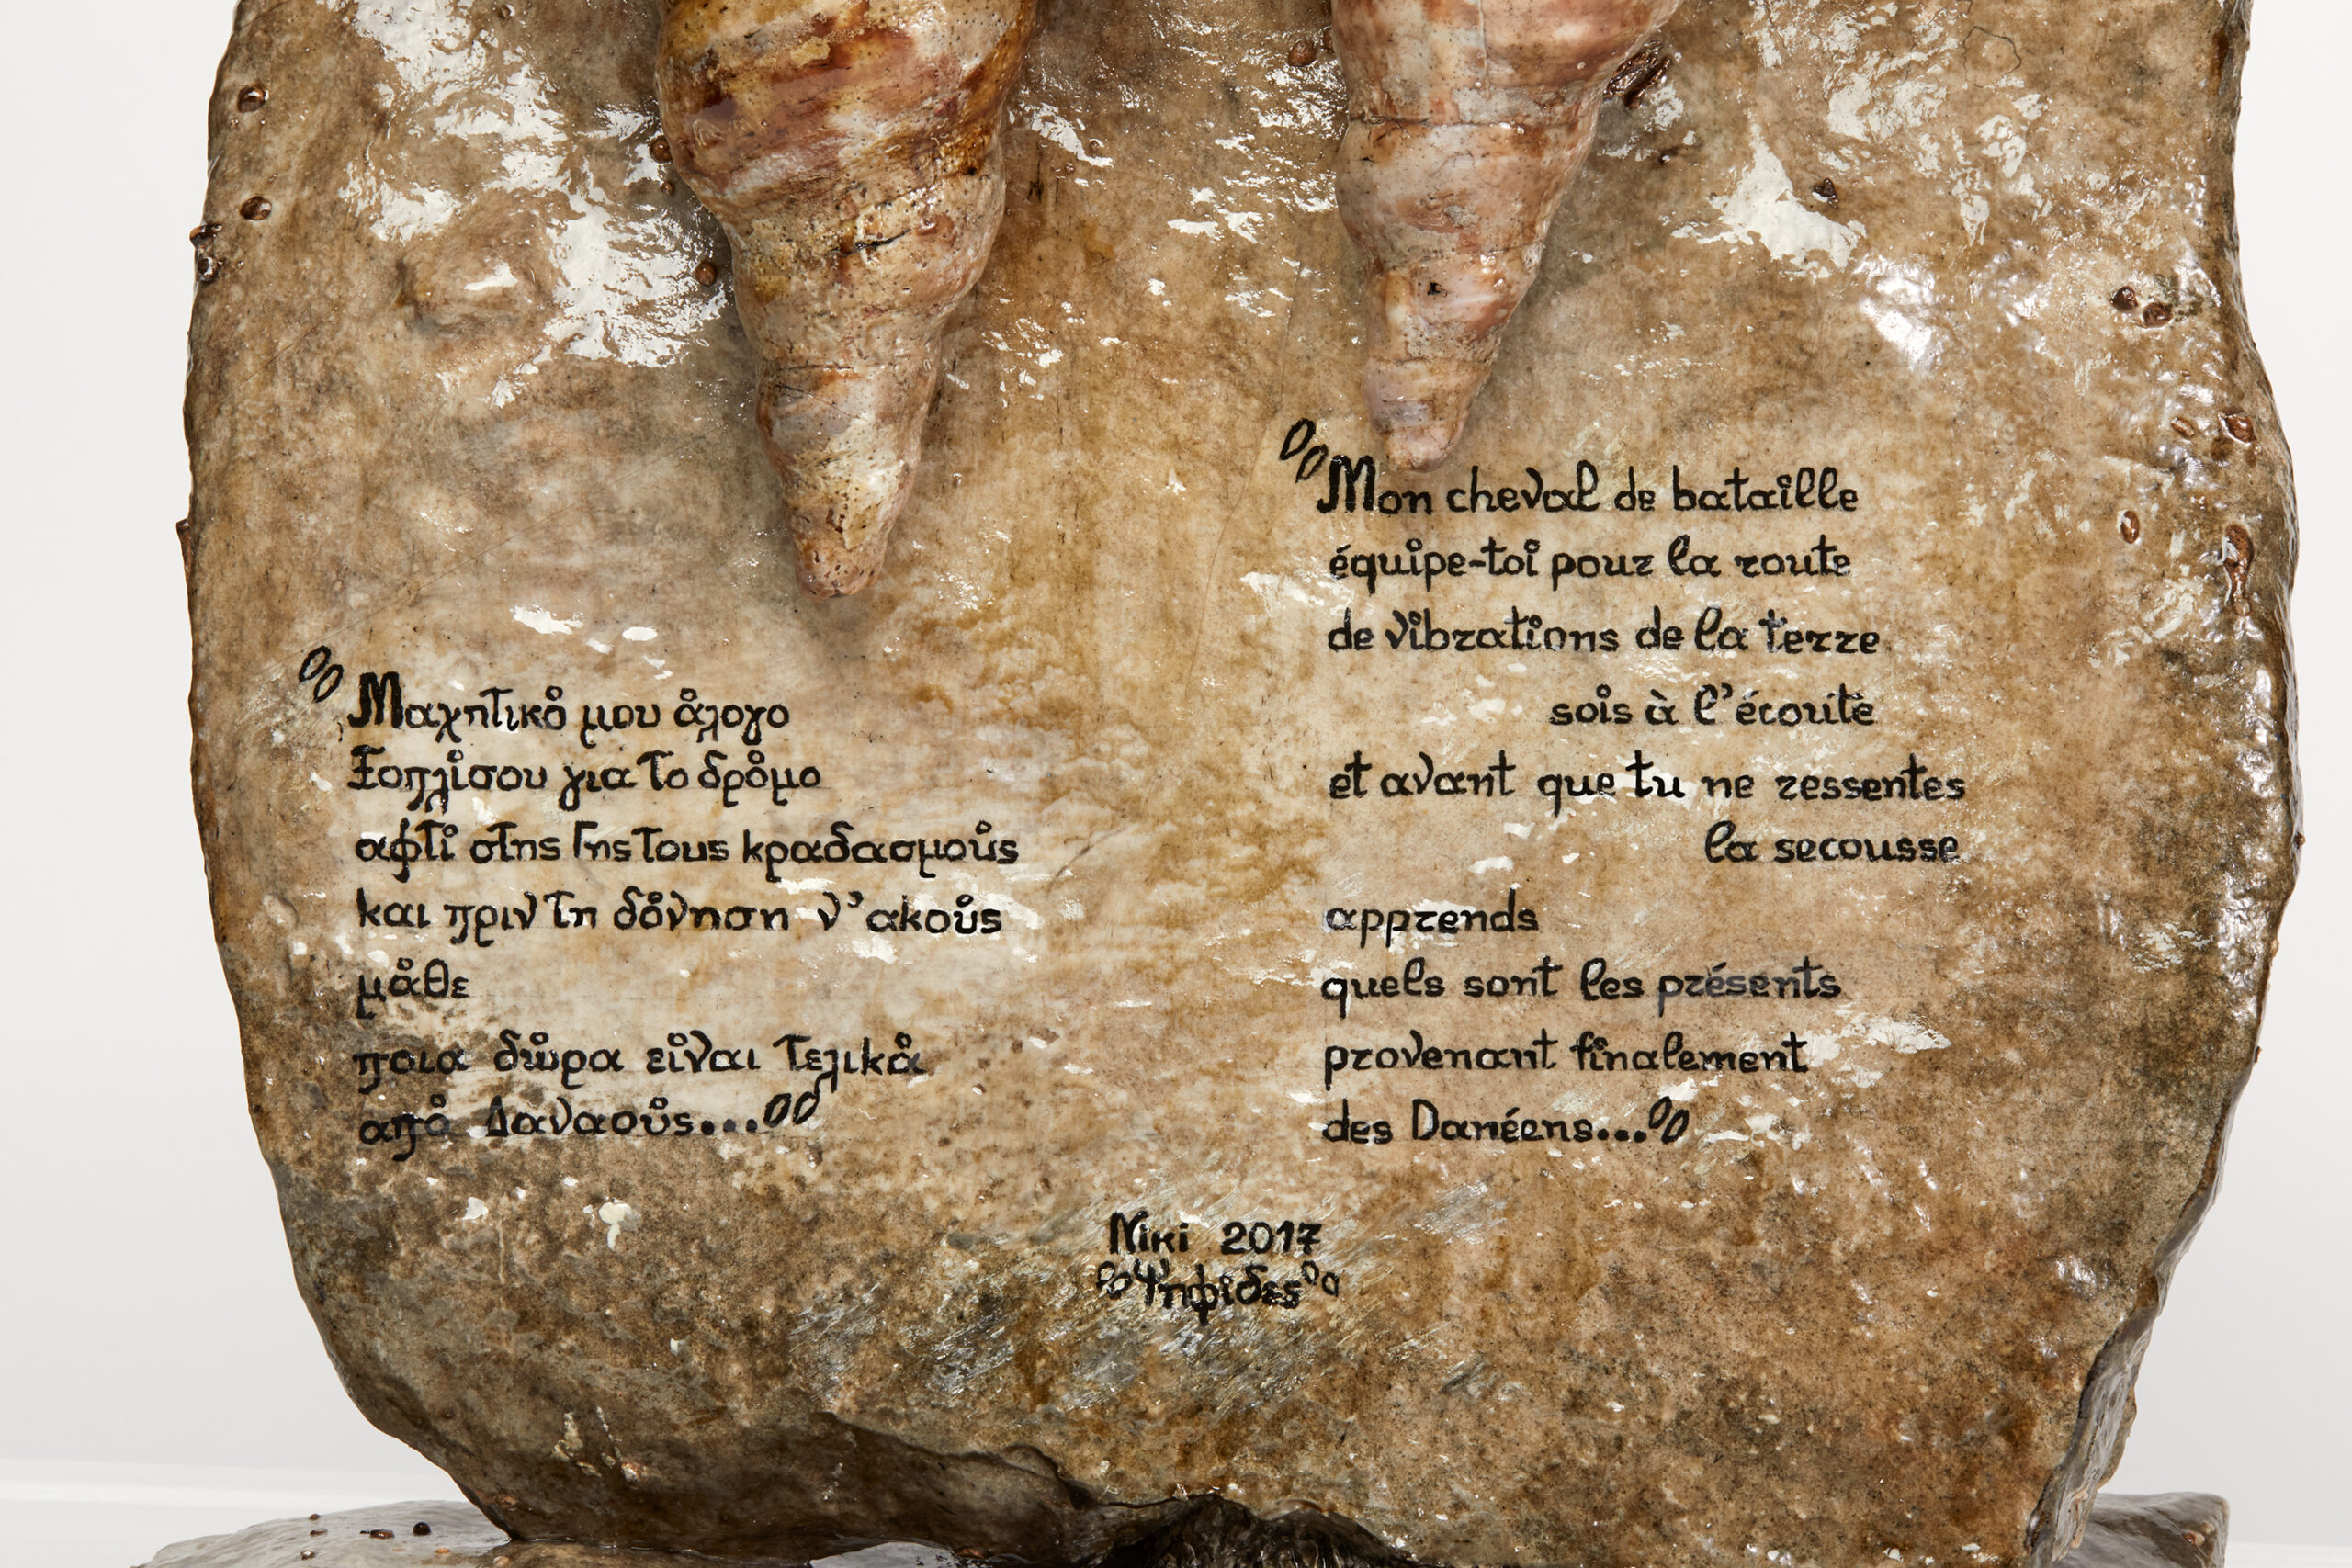 "Μαχητικό μου άλογο
Ξοπλίσου για το δρόμο
αφτί στης Γης τους κραδασμούς
και πριν τη δόνηση ν'ακούς
μάθε
ποια δώρα είναι τελικά
από Δαναούς..."
"Mon cheval de bataille
équipe-toi pour la route
de vibrations de la terre
sois à l'écoute
et avant que tu ne ressentes
la secousse
apprends
quels sont les présents
provenant finalement
des Danéens..."
Niki 2017
"Ψηφίδες"